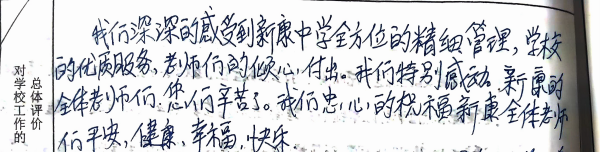 对学校工作的
总体评价
我们深深的感受到新康中学全方位的精细管理,学校
的优质服务,老师们的倾心付出。我们特别感动,新康的
全体老师们,您们辛苦了。我们忠心的祝福新康全体老师
们平安,健康,幸福,快乐